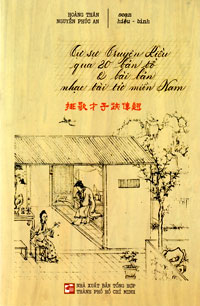 HOÀNG TRÂN
NGUYỄN PHÚC AN
soạn
hiệu - bình
Tự sự Truyện Kiều
qua 20 bản tổ
& bài bản
nhạc tài tử miền Nam
才子
NHÀ XUẤT BẢN TỔNG HỢP
THÀNH PHỐ HỒ CHÍ MINH